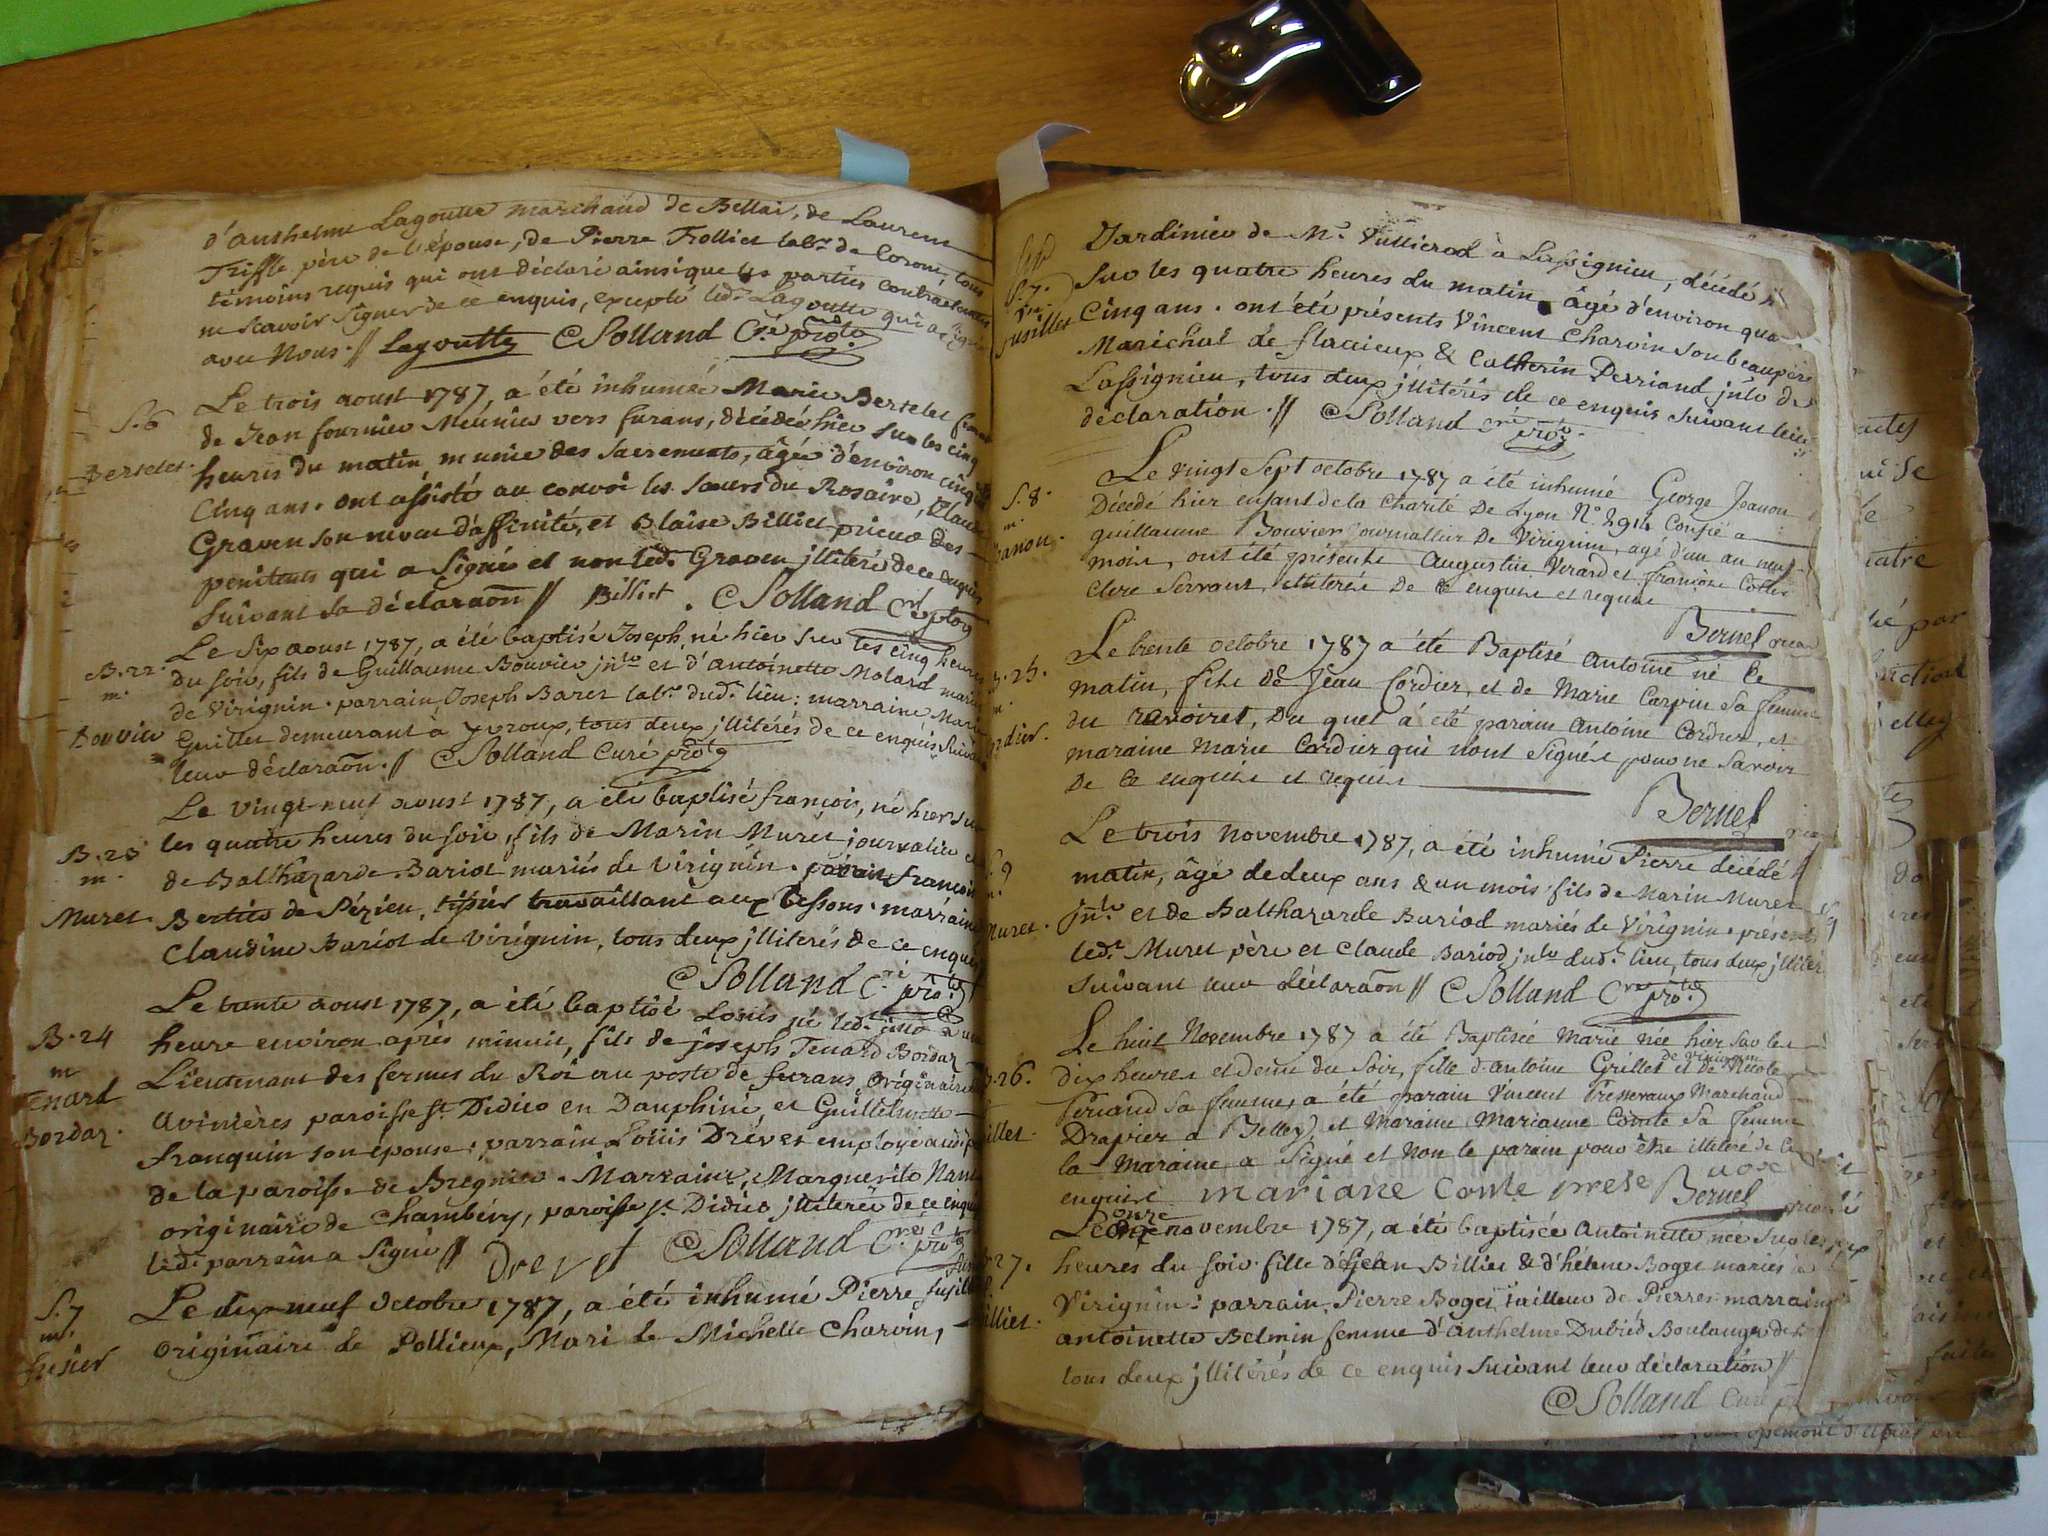 d'anthelme Lagoutte marchand de Bellai, de Laurent
Triffle père de l'épouse, de Pierre Trolliet labr. de Coron, tous
témoins requis qui ont déclaré ainsi que les parties contractantes
ne scavoir signer de ce enquis, excepté led. Lagoutte qui a signé
avec Nous .// Lagoutte C Solland Cré
Le trois aoust 1787, a été inhumée Marie Bertelet femme
S.6
de Jean fournier Meûnier vers furans, décédée hier sur les cinq
Bertelet.
heures du matin munie des sacrements, âgée d'environ cinquante
Cinq ans. ont assisté au convoi les soeurs du Rosaire, Claude
Graven son neveu d'affinité, et Blaise Billiet prieur des
penitents qui a signé et non led. Graven jllitéré de ce enquis
suivant sa déclaraon // Billiet . C Solland Cré
Le six aoust 1787, a été baptisé Joseph, né hier sur les cinq heures
B.22.
m.
du soir, fils de Guillaume Bouvier jnlr et d'antoinette Molard mariés
Bouvier
de Virignin. parrain Joseph Baret labr. dud. lieu; marraine Marie
Guillet demeurant à yvroux, tous deux jllitérés de ce enquis suivant
leur déclaraon .// C Solland Curé
Le vingt-neuf aoust 1787, a été baptisé françois, né hier sur
B.23
m.
les quatre heures du soir, fils de Marin Muret journalier et
de Balthazarde Bariot mariés de Virignin. parrain françois
Muret.
Bertier de Pézieu, tissier travaillant aux bessons. marraine
Claudine Bariot de Virignin, tous deux jllitérés de ce enquis
C Solland C.ré
Le trente aoust 1787, a été baptisé Louis né led. jour à une
B.24
m
heure environ après minuit, fils de joseph Tenard Bordaz
Tenard
Lieutenant des fermes du Roi au poste de furans originaire
Bordaz.
avinières paroisse St. Didier en Dauphiné, et Guillelmette
franquin son épouse. parrain Loüis Drévet employé
de la paroisse de Bregnier. Marraine, Marguerite
originaire de Chambéry, paroisse St. Didier jllitérée de ce enquis
led. parrain a signé // Drevet C Solland C.ré
S.7
m.
Le dix neuf octobre 1787, a été inhumé Pierre fusil
originaire de Pollieux, Mari de Michelle Charvin,
Jardinier de Mr. Vullierod à Lassignieu, décédé
S.7.
sur les quatre heures du matin âgé d'environ
fusillet
Cinq ans. ont été présents Vincent Charvin son beaupère
Maréchal de flaxieux & Catherin Perriand jnlr de
Lassignieu, tous deux jllitérés de ce enquis suivant leur
déclaration .// C Solland cré
Le vingt sept octobre 1787 a été inhumé George Jeanon
S.8.
m.
Décédé hier enfant de la charité De Lyon No. 2914 Confié a
Jeanon.
guillaume Bouvier journallier De Virignin, agé d'un an neuf
mois, ont été présents Augustin Verard et françois Cottin
Clerc servant, illiterés De ce enquis et requis
Bernel
Le trente octobre 1787 a été Baptisé antoine né ce
25.
matin, fils de Jean Cordier, et de Marie Carpin Sa femme
Cordier.
du ravoiret, Du quel a été parain antoine Cordier, et
maraine marie Cordier qui nont signés pour ne savoir
De ce enquis et requis
Bernel
Le trois novembre 1787, a été inhumé Pierre décédé
S.9
matin, âgé de deux ans & un mois fils de Marin Muret
Muret.
jnlr et de Balthazarde Bariod mariés de Virignin. présents
led. Muret père et Claude Bariod jnlr dud. lieu, tous deux jllitérés
suivant leur déclaraon // C Solland Cré
Le huit Novembre 1787 a été Baptisée Marie née hier sur les
B.26.
dix heures et demi du soir, fille d'antoine Grillet et de Nicole
de virignin
Periand sa femme, a été parain Vincent Presseraux Marchand
Drapier a Belley et maraine Marianne Comte sa femme
la maraine a signé et non le parain pour être illiteré de ce
enquis mariane Conte prese Bernel
Le onze novembre 1787, a été baptisée antoinette née sur les six
27.
heures du soir. fille de Jean Billiet & d'hélene Boget mariés à
Billiet.
Virignin: parrain, Pierre Boget tailleur de Pierres marraine
antoinette Belmin femme d'anthelme Dubied Boulanger
tous deux jllitérés de ce enquis suivant leur déclaration //
C Solland Curé